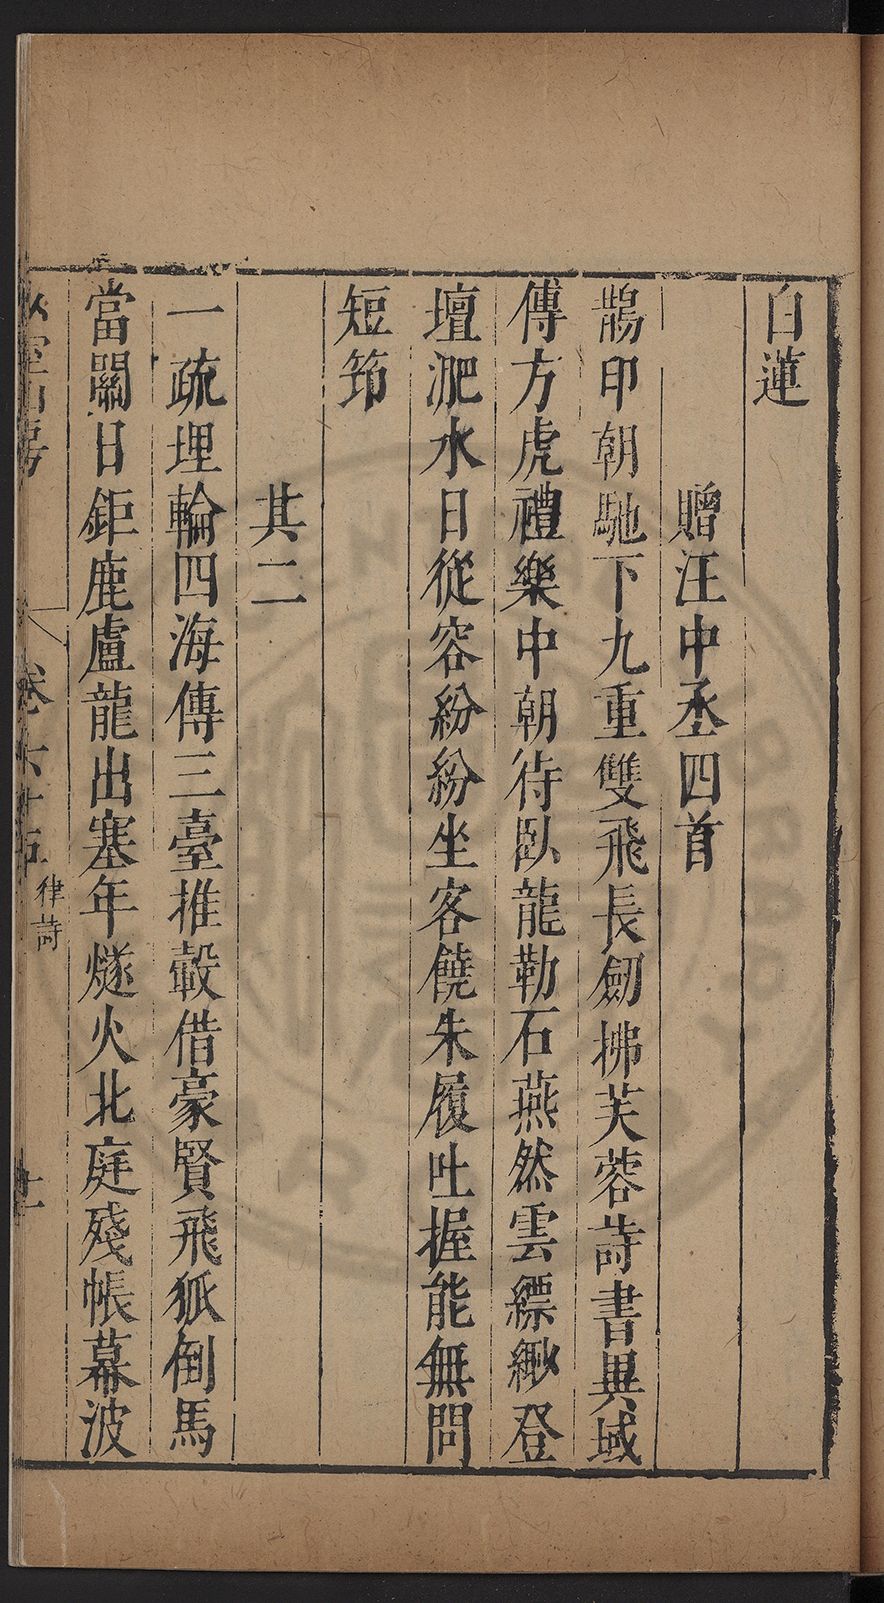 白蓮
贈汪中丞四首
鵲印朝馳下九重雙飛長劒拂芙蓉詩書異域
傅方虎禮樂中朝待臥龍勒石燕然雲縹緲登
壇淝水日從容紛紛坐客饒朱履吐握能無問
短筇
其二
一疏埋輪四海傳三臺推轂借豪賢飛狐倒馬
當關日鉅鹿盧龍出塞年燧火北庭殘帳幕波
卷六十
律詩